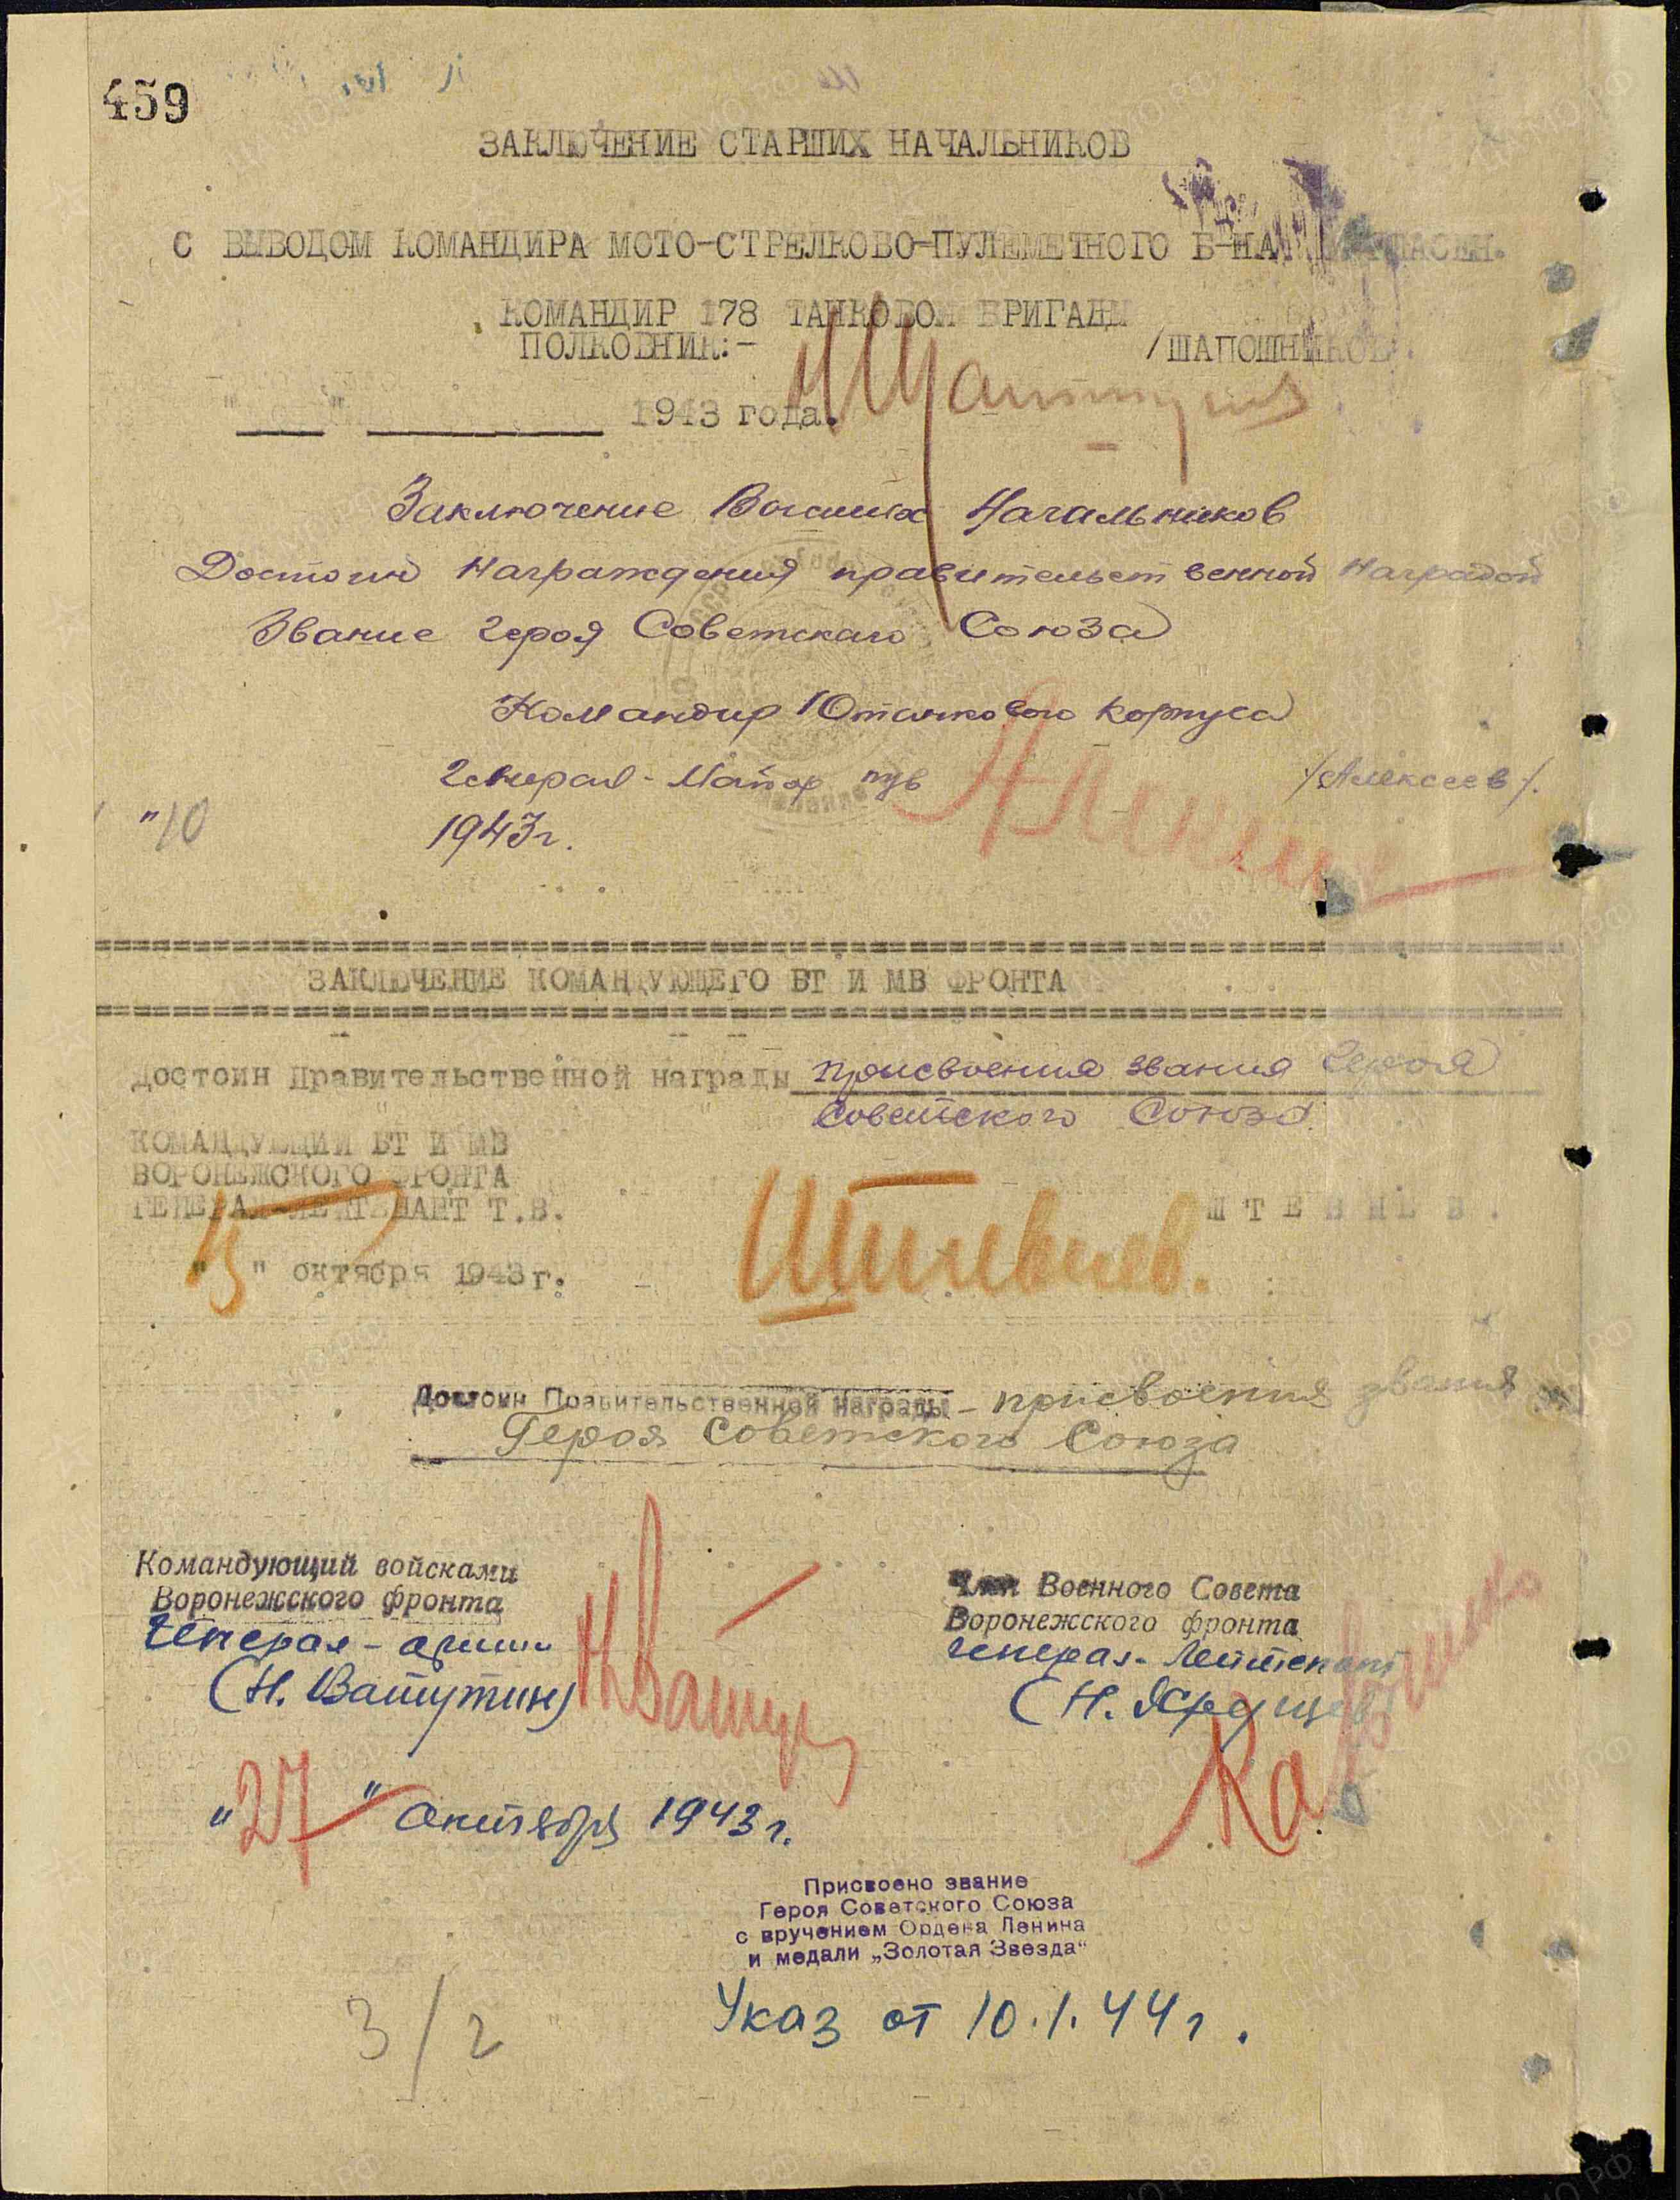 459
ЗАКЛЮЧЕНИЕ СТАРШИХ НАЧАЛЬНИКОВ
С ВЫВОДОМ КОМАНДИРА МОТО-СТРЕЛКОВО-ПУЛЕМЕТНОГО Б-НА СОГЛАСЕН.
КОМАНДИР 178 ТАНКОВОЙ БРИГАДЫ
ПОЛКОВНИК:- /ШАПОШНИКОВ/.
"   "   1943 года.
Заключение Высших Начальников
Достоин награждения правительственной наградой
Звание героя Советскаго Союза
Командир 10 танкового корпуса
Генерал-Майор т/в /Алексеев/.
"10   1943г.
ЗАКЛЮЧЕНИЕ КОМАНДУЮЩЕГО БТ И МВ ФРОНТА
Достоин Правительственной награды присвоения звания Героя
Советского Союза.
КОМАНДУЮЩИЙ БТ И МВ
ВОРОНЕЖСКОГО ФРОНТА
ГЕНЕРАЛ-ЛЕЙТЕНАНТ Т.В. Штевнев. ШТЕВНЕВ.
"15" октября 1943г.
Достоин Правительственной награды - присвоения звания
Героя Советского Союза
Командующий войсками
Воронежского фронта
Генерал-армии
(Н. Ватутин)
Член Военного Совета
Воронежского фронта
Генерал-Лейтенант
(Н. Хрущев)
"27" октября 1943г.
Присвоено звание
Героя Советского Союза
с вручением Ордена Ленина
и медали „Золотая Звезда"
Указ от 10.1.44г.
3/2